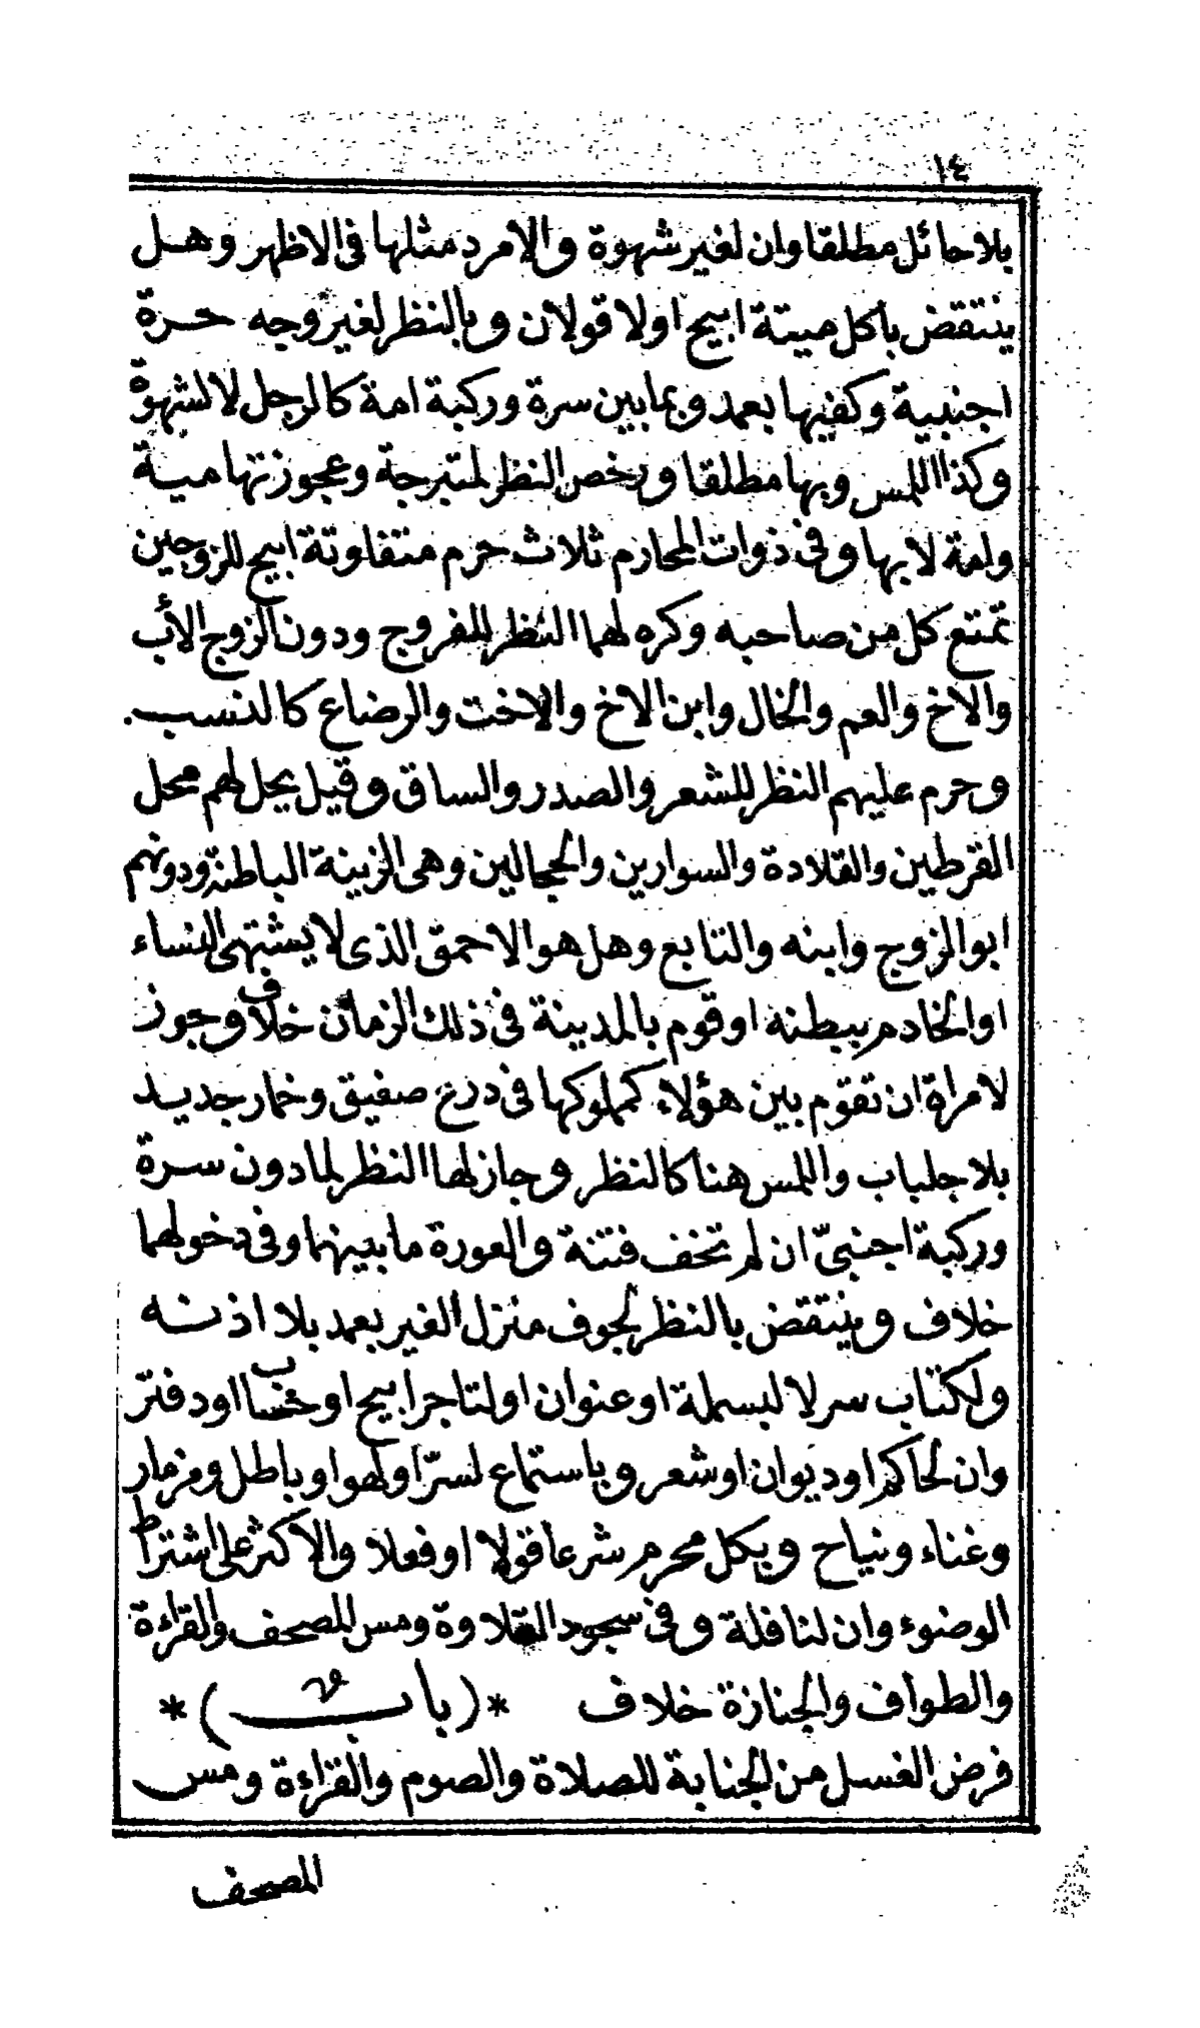 ١٤
بلا حائل مطلقا وان لغير شهوة والامرد مثلها فى الاظهر وهل
ينتقض باكل ميتة ابيح اولا قولان وبالنظر لغير وجه حرة
اجنبية وكفيها بعمد وبما بين سرة وركبة امة كالرجل لا لشهوة
وكذا اللمس وبها مطلقا ورخص النظر لمتبرجة وعجوز تهامية
وامة لا بها وفى ذوات المحارم ثلاث حرم متفاوتة ابيح للزوجين
تمتع كل من صاحبه وكره لهما النظر للفروج ودون الزوج الأب
والاخ والعم والخال وابن الاخ والاخت والرضاع كالنسب.
وحرم عليهم النظر للشعر والصدر والساق وقيل يحل لهم محل
القرطين والقلادة والسوارين والحجالين وهى الزينة الباطنة ودونهم
ابو الزوج وابنه والتابع وهل هو الاحمق الذى لا يشتهى النساء
او الخادم ببطنه او قوم بالمدينة فى ذلك الزمان خلاف وجوز
لامراة ان تقوم بين هؤلاء كمملوكها فى درع صفيق وخمار جديد
بلا جلباب واللمس هنا كالنظر وجاز لها النظر لما دون سرة
وركبة اجنبىّ ان لم تخف فتنة والعورة ما بينهما وفى دخولهما
خلاف وينتقض بالنظر لجوف منزل الغير بعمد بلا اذنه
ولكتاب سر لا لبسملة او عنوان او لتاجر ابيح او حساب او دفتر
وان لحاكم او ديوان او شعر وباستماع لسرّ او لهو او باطل ومزمار
وغناء ونياح وبكل محرم شرعا قولا او فعلا والاكثر على اشتراط
الوضوء وان لنافلة وفى سجود التلاوة ومس المصحف والقراءة
والطواف والجنازة خلاف * (باب) *
فرض الغسل من الجنابة للصلاة والصوم والقراءة ومس
المصحف